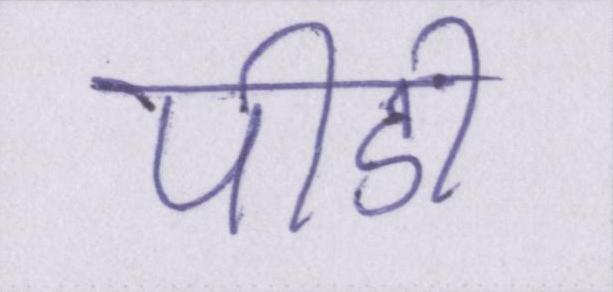 पीडी